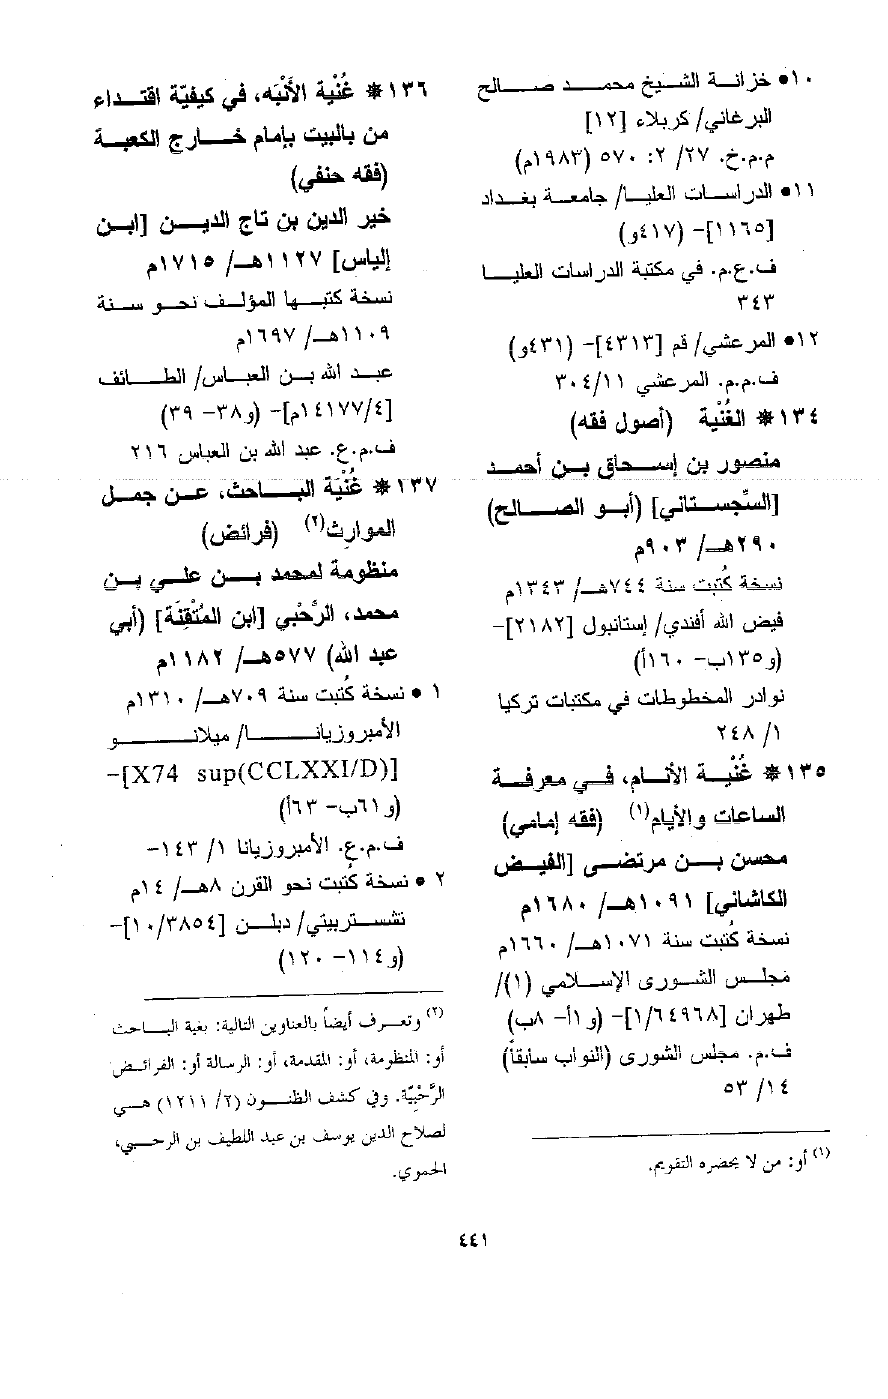 ١٠• خزانة الشيخ محمد صالح
البرغاني/ كربلاء [١٢]
م.م.خ. ٢٧/ ٢: ٥٧٠ (١٩٨٣م)
١١• الدراسات العليا/ جامعة بغداد
[١١٦٥]- (٤١٧و)
ف.ع.م. في مكتبة الدراسات العليا
٣٤٣
١٢• المرعشي/ قم [٤٣١٣]- (٤٣١و)
ف.م.م. المرعشي ٣٠٤/١١
١٣٤* الغُنْية (أصول فقه)
منصور بن إسحاق بن أحمد
[السِّجستاني] (أبو الصالح)
٢٩٠هـ/ ٩٠٣م
نسخة كُتبت سنة ٧٤٤هـ/ ١٣٤٣م
فيض الله أفندي/ إستانبول [٢١٨٢]-
(و١٣٥ب- ١٦٠أ)
نوادر المخطوطات في مكتبات تركيا
١/ ٢٤٨
١٣٥* غُنْية الأنام، في معرفة
الساعات والأيام(١) (فقه إمامي)
محسن بن مرتضى [الفيض
الكاشاني] ١٠٩١هـ/ ١٦٨٠م
نسخة كُتبت سنة ١٠٧١هـ/ ١٦٦٠م
مجلس الشورى الإسلامي (١)/
طهران [١/٦٤٩٦٨]- (و١أ- ٨ب)
ف.م. مجلس الشورى (النواب سابقاً)
١٤/ ٥٣
(١) أو: من لا يحضره التقويم.
١٣٦* غُنْية الأَنْبَه، في كيفيّة اقتداء
من بالبيت بإمام خارج الكعبة
(فقه حنفي)
خير الدين بن تاج الدين [ابن
إلياس] ١١٢٧هـ/ ١٧١٥م
نسخة كتبها المؤلف نحو سنة
١١٠٩هـ/ ١٦٩٧م
عبد الله بن العباس/ الطائف
[١٤١٧٧/٤م]- (و٣٨- ٣٩)
ف.م.ع. عبد الله بن العباس ٢١٦
١٣٧* غُنْيَة الباحث، عن جمل
الموارث(٢) (فرائض)
منظومة لمحمد بن علي بن
محمد، الرَّحْبي [ابن المُتْقِنَة] (أبي
عبد الله) ٥٧٧هـ/ ١١٨٢م
١ • نسخة كُتبت سنة ٧٠٩هـ/ ١٣١٠م
الأمبروزيانا/ ميلانو
[X74 sup(CCLXXI/D)]-
(و٦١ب- ٦٣أ)
ف.م.ع. الأمبروزيانا ١/ ١٤٣-
٢ • نسخة كُتبت نحو القرن ٨هـ/ ١٤م
تشستربيتي/ دبلن [١٠/٣٨٥٤]-
(و١١٤- ١٢٠)
(٢) وتعرف أيضاً بالعناوين التالية: بغية الباحث
أو: المنظومة، أو: المقدمة، أو: الرسالة أو: الفرائض
الرَّحْبِيَّة. وفي كشف الظنون (٢/ ١٢١١) هي
لصلاح الدين يوسف بن عبد اللطيف بن الرحبي،
الحموي.
٤٤١